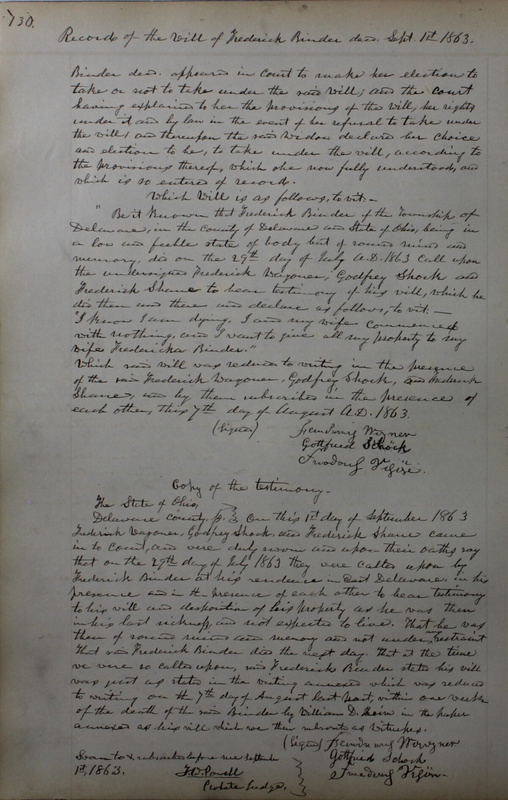 730.
Record of the Will of Frederick Binder decd. Sept. 1st 1863.
Binder decd. appeared in Court to make her election to
take or not to take under the said will; and the Court
having explained to her the provisions of the will, her rights
under it and by law in the event of her refusal to take under
the will; and thereupon the said widow declared her choice
and election to be, to take under the will, according to
the provisions thereof, which she now fully understood, and
which is so entered of record.
Which Will is as follows, to wit:-
"Be it Known that Frederick Binder of the Township of
Delaware, in the County of Delaware and State of Ohio, being in
a low and feeble state of body but of sound mind and
memory, did on the 29th day of July A.D. 1863 Call upon
the undersigned Frederick Wagoner, Godfrey Shock and
Frederick Shane to hear testimony of his will, which he
did then and there and declare as follows, to wit:-
"I know I am dying, I and my wife Commenced
with nothing, and I want to give all my property to my
wife Fredericka Binder."
Which said will was reduced to writing in the presence
of the said Frederick Wagoner, Godfrey Shock, and Frederick
Shane, and by them subscribed in the presence of
each other, this 7th day of August A.D. 1863.
(Signed)
Gottfried Schock
Copy of the testimony.
The State of Ohio,
Delaware County, ss. } On this 1st day of September 1863
Frederick Wagoner, Godfrey Shock and Frederick Shane came
in to Court, and were duly sworn and upon their oaths say
that on the 29th day of July 1863 they were called upon by
Frederick Binder at his residence in said Delaware in his
presence and in the presence of each other to hear testimony
to his will and disposition of his property as he was then
in his last sickness and not expected to live. That he was
then of sound mind and memory and not under restraint
That said Frederick Binder died the next day. That at the time
we were so called upon, said Frederick Binder stated his will
was just as stated in the writing annexed which was reduced
to writing on the 7th day of August last past, within one week
of the death of the said Binder by William D. in the paper
annexed as his will which we then subscribed as witnesses.
(Signed)
Gottfried Schock
Sworn to & subscribed before me September
1st, 1863. T.W. Powell
Probate Judge.